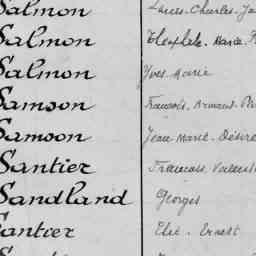 Salmon Louis-Charles-Ja
Salmon Théophile. Marie. F
Salmon Yves. Marie
Samson François, Armand. Pa
Samson Jean Marie. Désiré
Santier François. Valenti
Sandland Georges
Santier Elie. Ernest